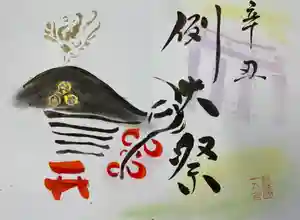 辛丑
例大祭